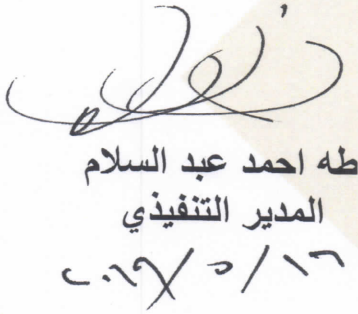 طه احمد عبد السلام
المدير التنفيذي
٢٠١٩/٥/١٦